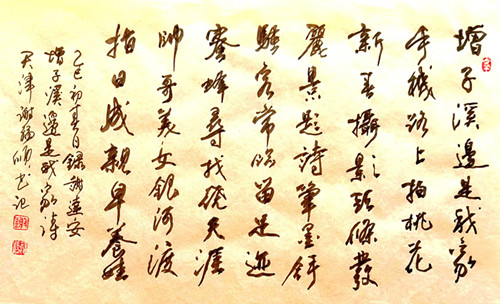 增子溪邊是我家
手機路上拍桃花
新春攝影頭條發
麗景題詩筆墨舒
騷客常臨留足迹
蜜蜂尋找繞天涯
帥哥美女銀河渡
指日成親早養娃
乙巳初春日錄謝蓮安
增子溪邊是我家詩
天津謝福順書記